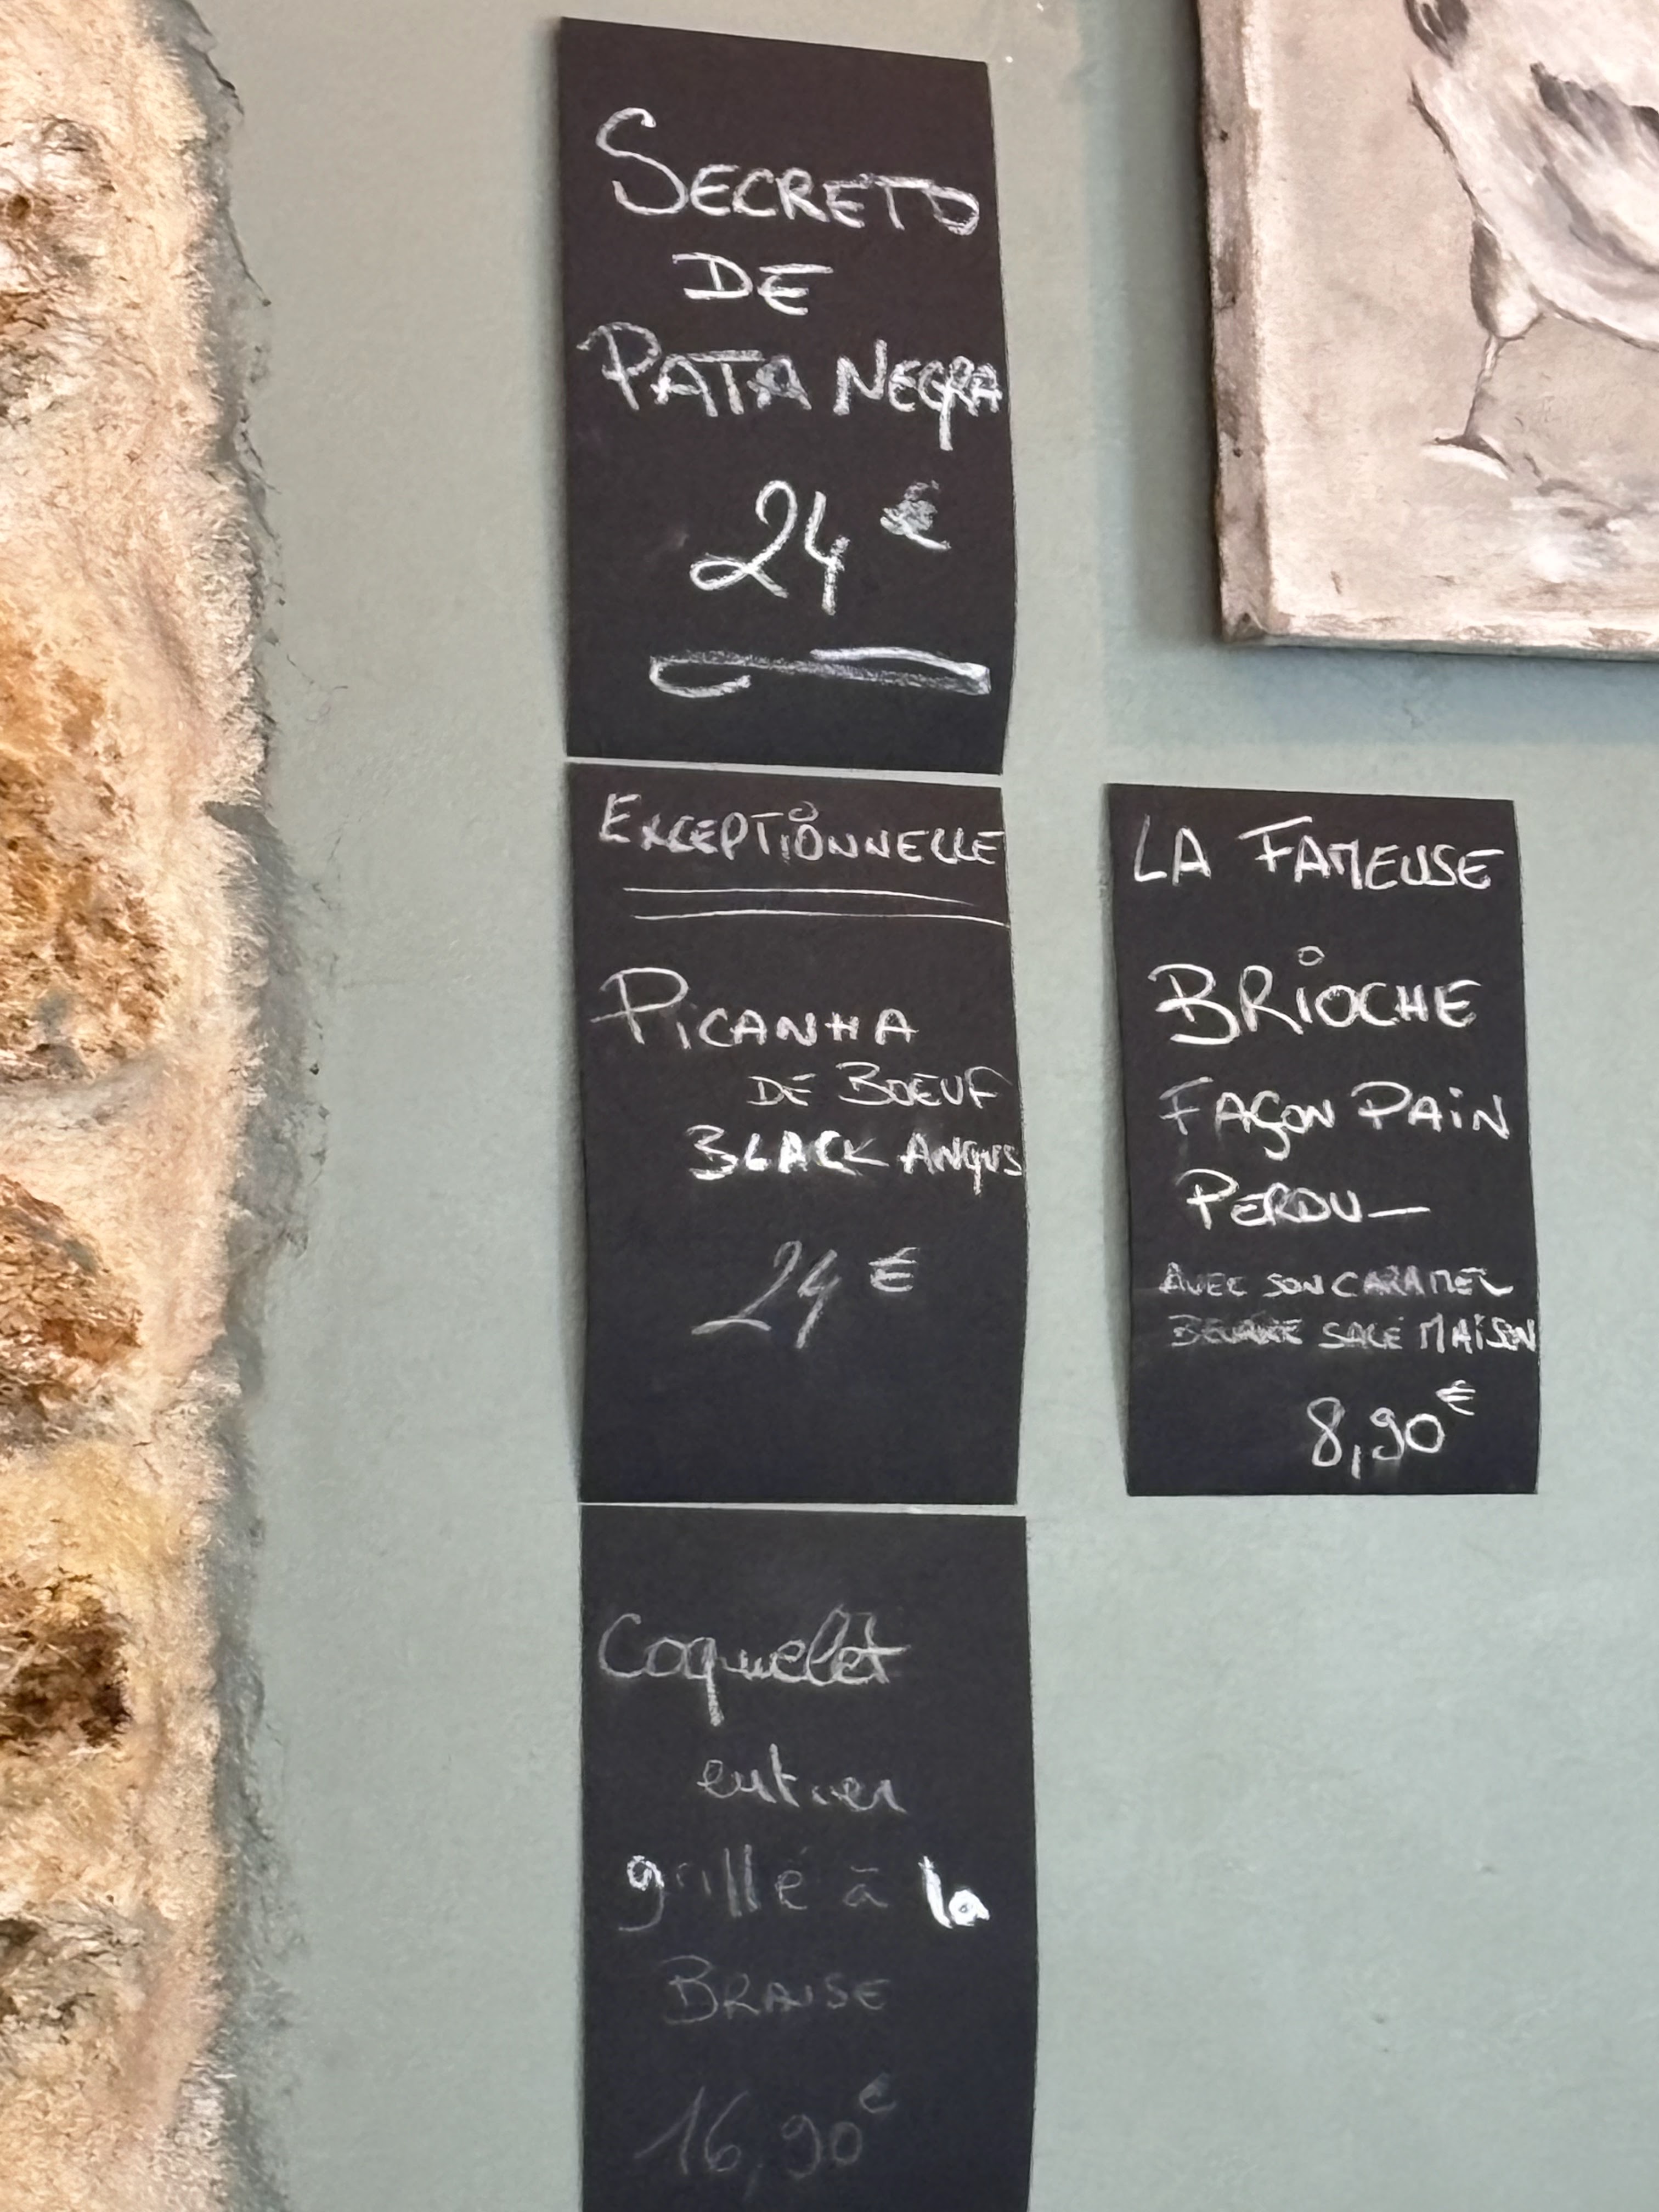 SECRETO
DE
PATA NEGRA
24 €
EXCEPTIONNELLE
PICANHA
DE BOEUF
BLACK ANGUS
24 €
Coquelet
entier
grillé à la
BRAISE
16,90€
LA FAMEUSE
BRIOCHE
FAÇON PAIN
PERDU—
AVEC SON CARAMEL
BEURRE SALÉ MAISON
8,90€